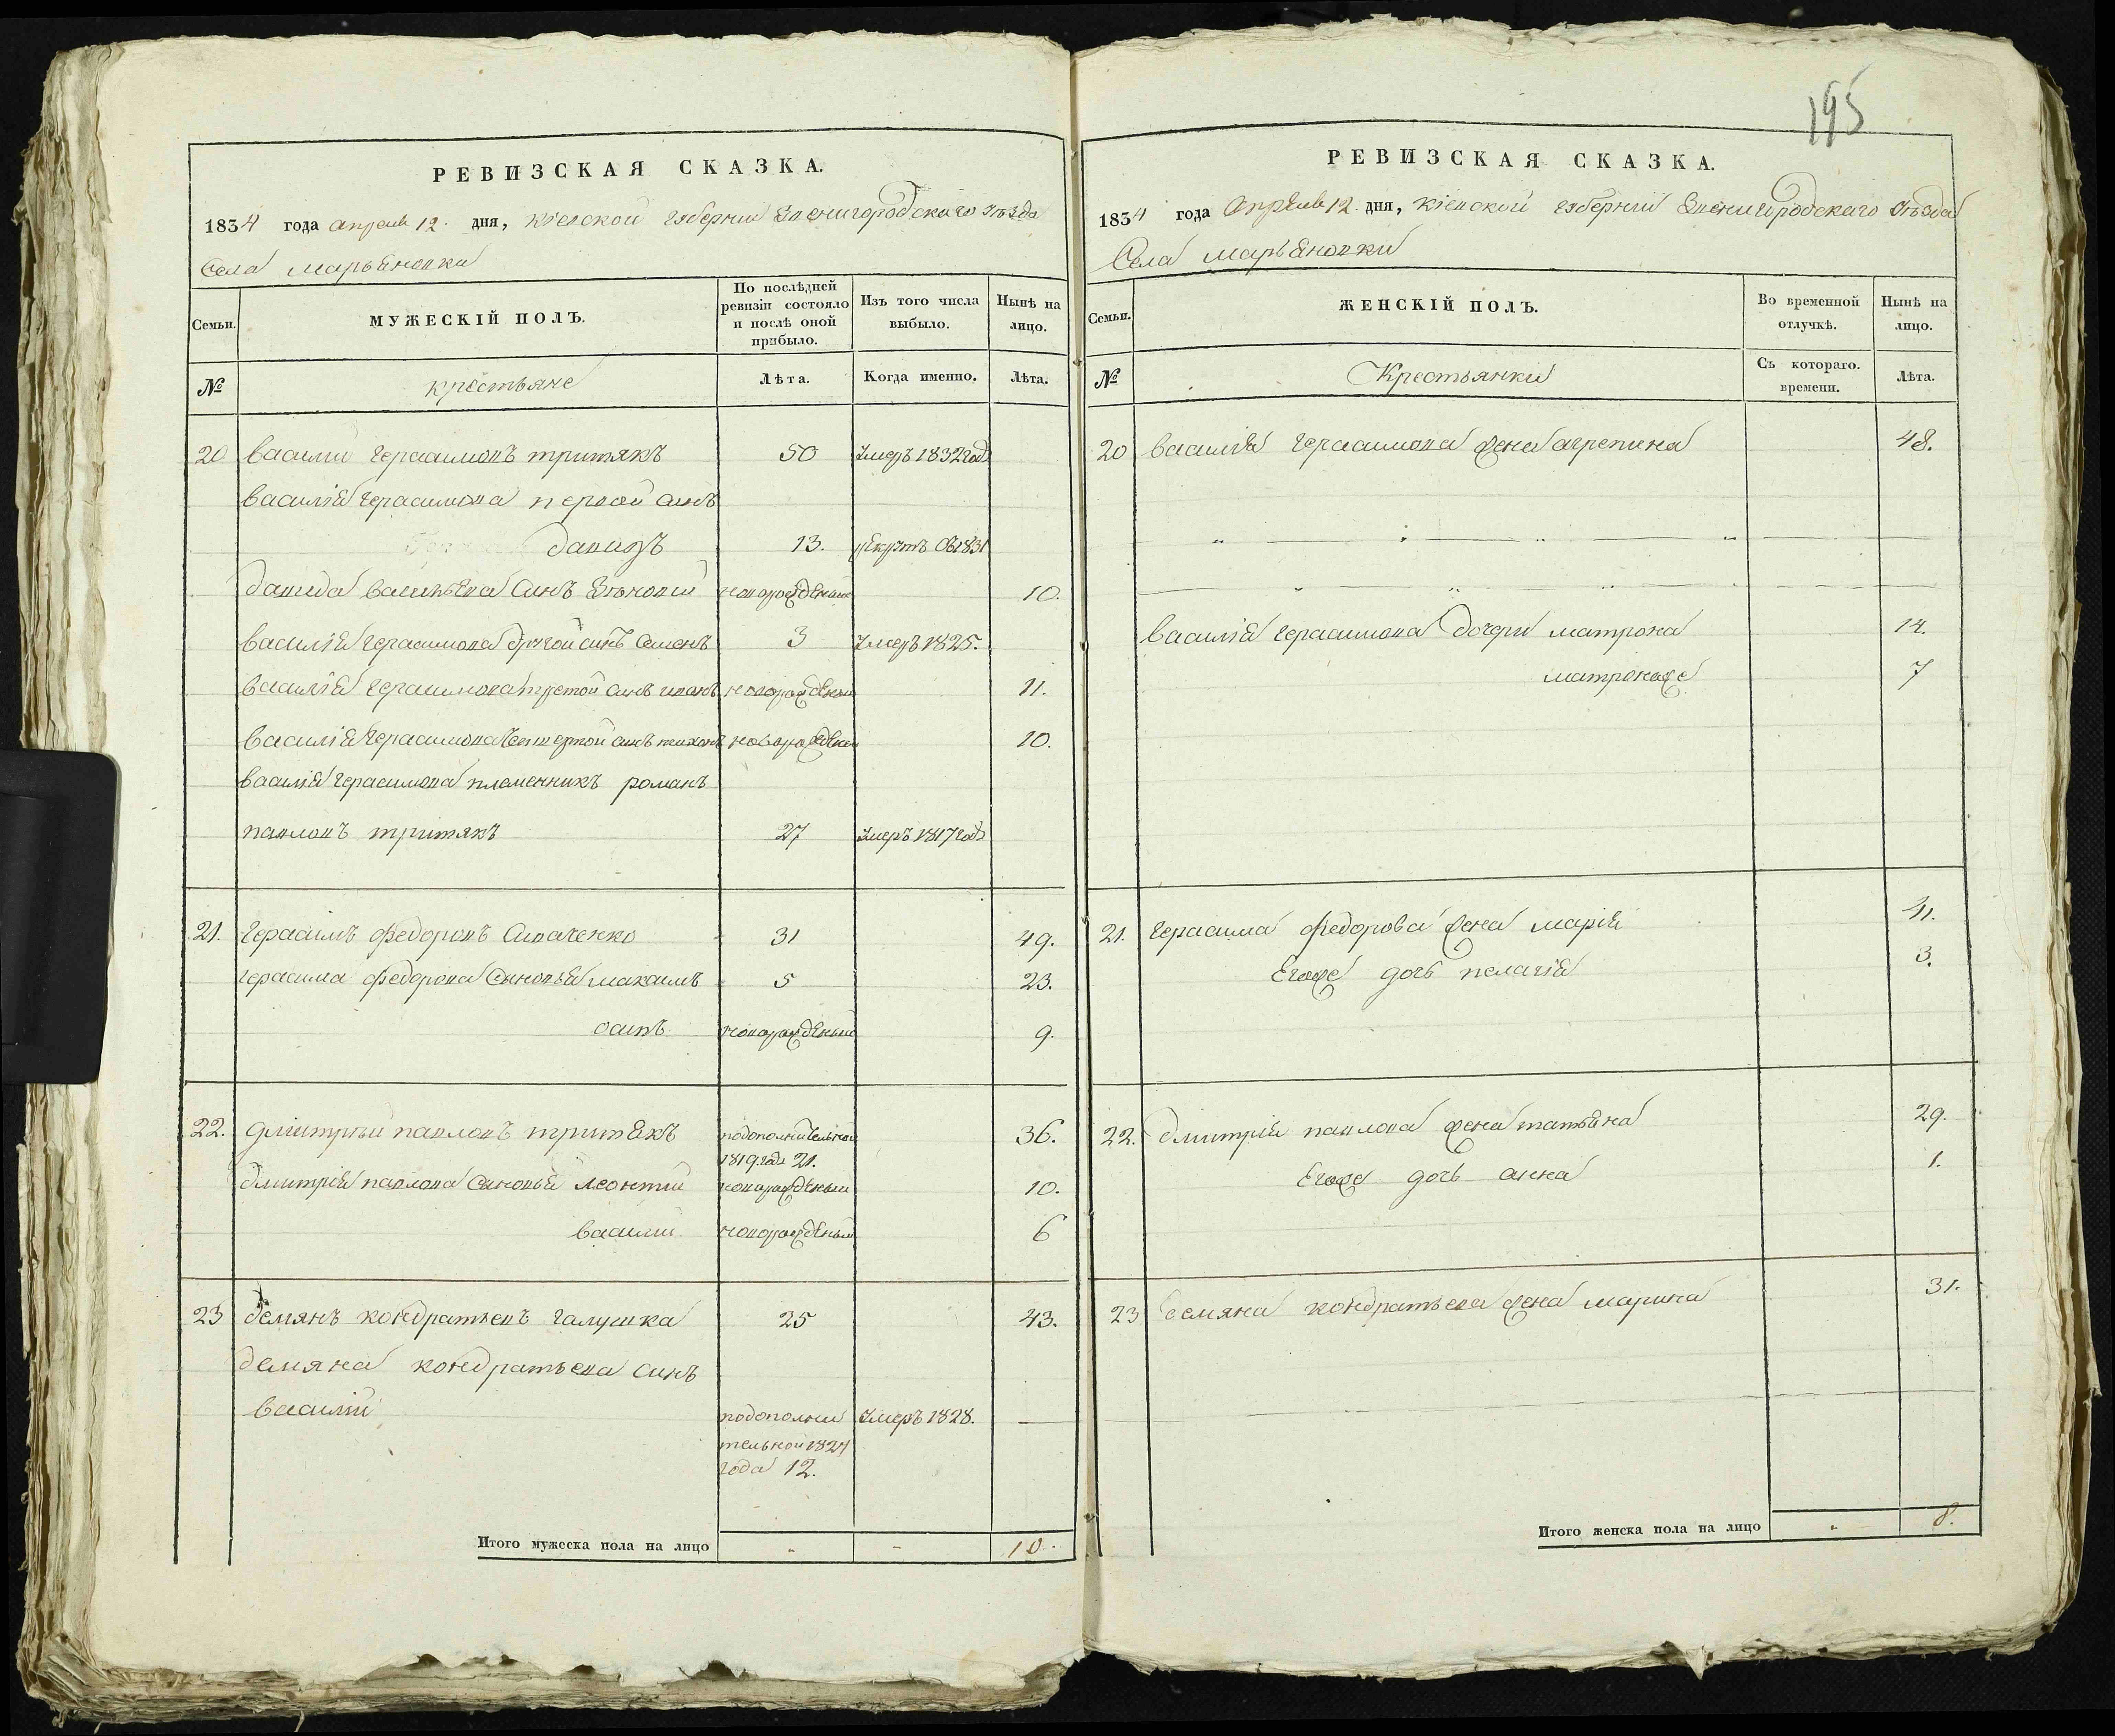 195
РЕВИЗСКАЯ СКАЗКА.
1834 года апреля 12. дня, Кіевской губерніи Звенигородского уѣзда
Села Марьяновки
Семьи.
МУЖЕСКІЙ ПОЛЪ.
По послѣдней ревизіи состояло и послѣ оной прибыло.
Изъ того числа выбыло.
Нынѣ на лицо.
№
крестьяне
Лѣта.
Когда именно.
Лѣта.
20 Василий Герасимовъ третякъ 50 Умеръ 1832 года
Василія Герасимова первой синъ
давидъ 13. рекрутъ 1831
давида Васильева синъ новорожденный 10.
Василія Герасимова другой синъ Семенъ 3 Умеръ 1825.
Василія Герасимова третой синъ иванъ новорожденный 11.
Василія Герасимова Четвертой синъ новорожденный 10.
Василія Герасимова племенникъ романъ
павловъ тритякъ 27 Умеръ 1817 года
21. Герасимъ Федоровъ 31 49.
герасима Федорова Сыновья максимъ 5 23.
осипъ новорожденный 9.
22. дмитрый павловъ тритякъ подополнительной 36.
1819 года 21.
дмитрія павлова Сыновья леонтий новорожденный 10.
василий новорожденный 6
23 демянъ кондратьевъ галушка 25 43.
демяна кондратьева синъ
василій подополни Умеръ 1828. —
тельной 1824
года 12.
Итого мужеска пола на лицо " - 10.
РЕВИЗСКАЯ СКАЗКА.
1834 года Апреля 12. дня, Кіевской губерніи Звенигородскаго уѣзда
Села Марьяновки
Семьи.
ЖЕНСКІЙ ПОЛЪ.
Во временной отлучкѣ.
Нынѣ на лицо.
№
Крестьянки
Съ котораго. времени.
Лѣта.
20 Василія Герасимова жена агрепина 48.
Василія Герасимова дочери матрона 14.
матронаже 7
21. Герасима Федорова жена марія 41.
Егоже дочь пелагія 3.
22. дмитрія павлова жена татьяна 29.
Егоже дочь анна 1.
23 демяна кондратьева жена марина 31.
Итого женска пола на лицо " 8.